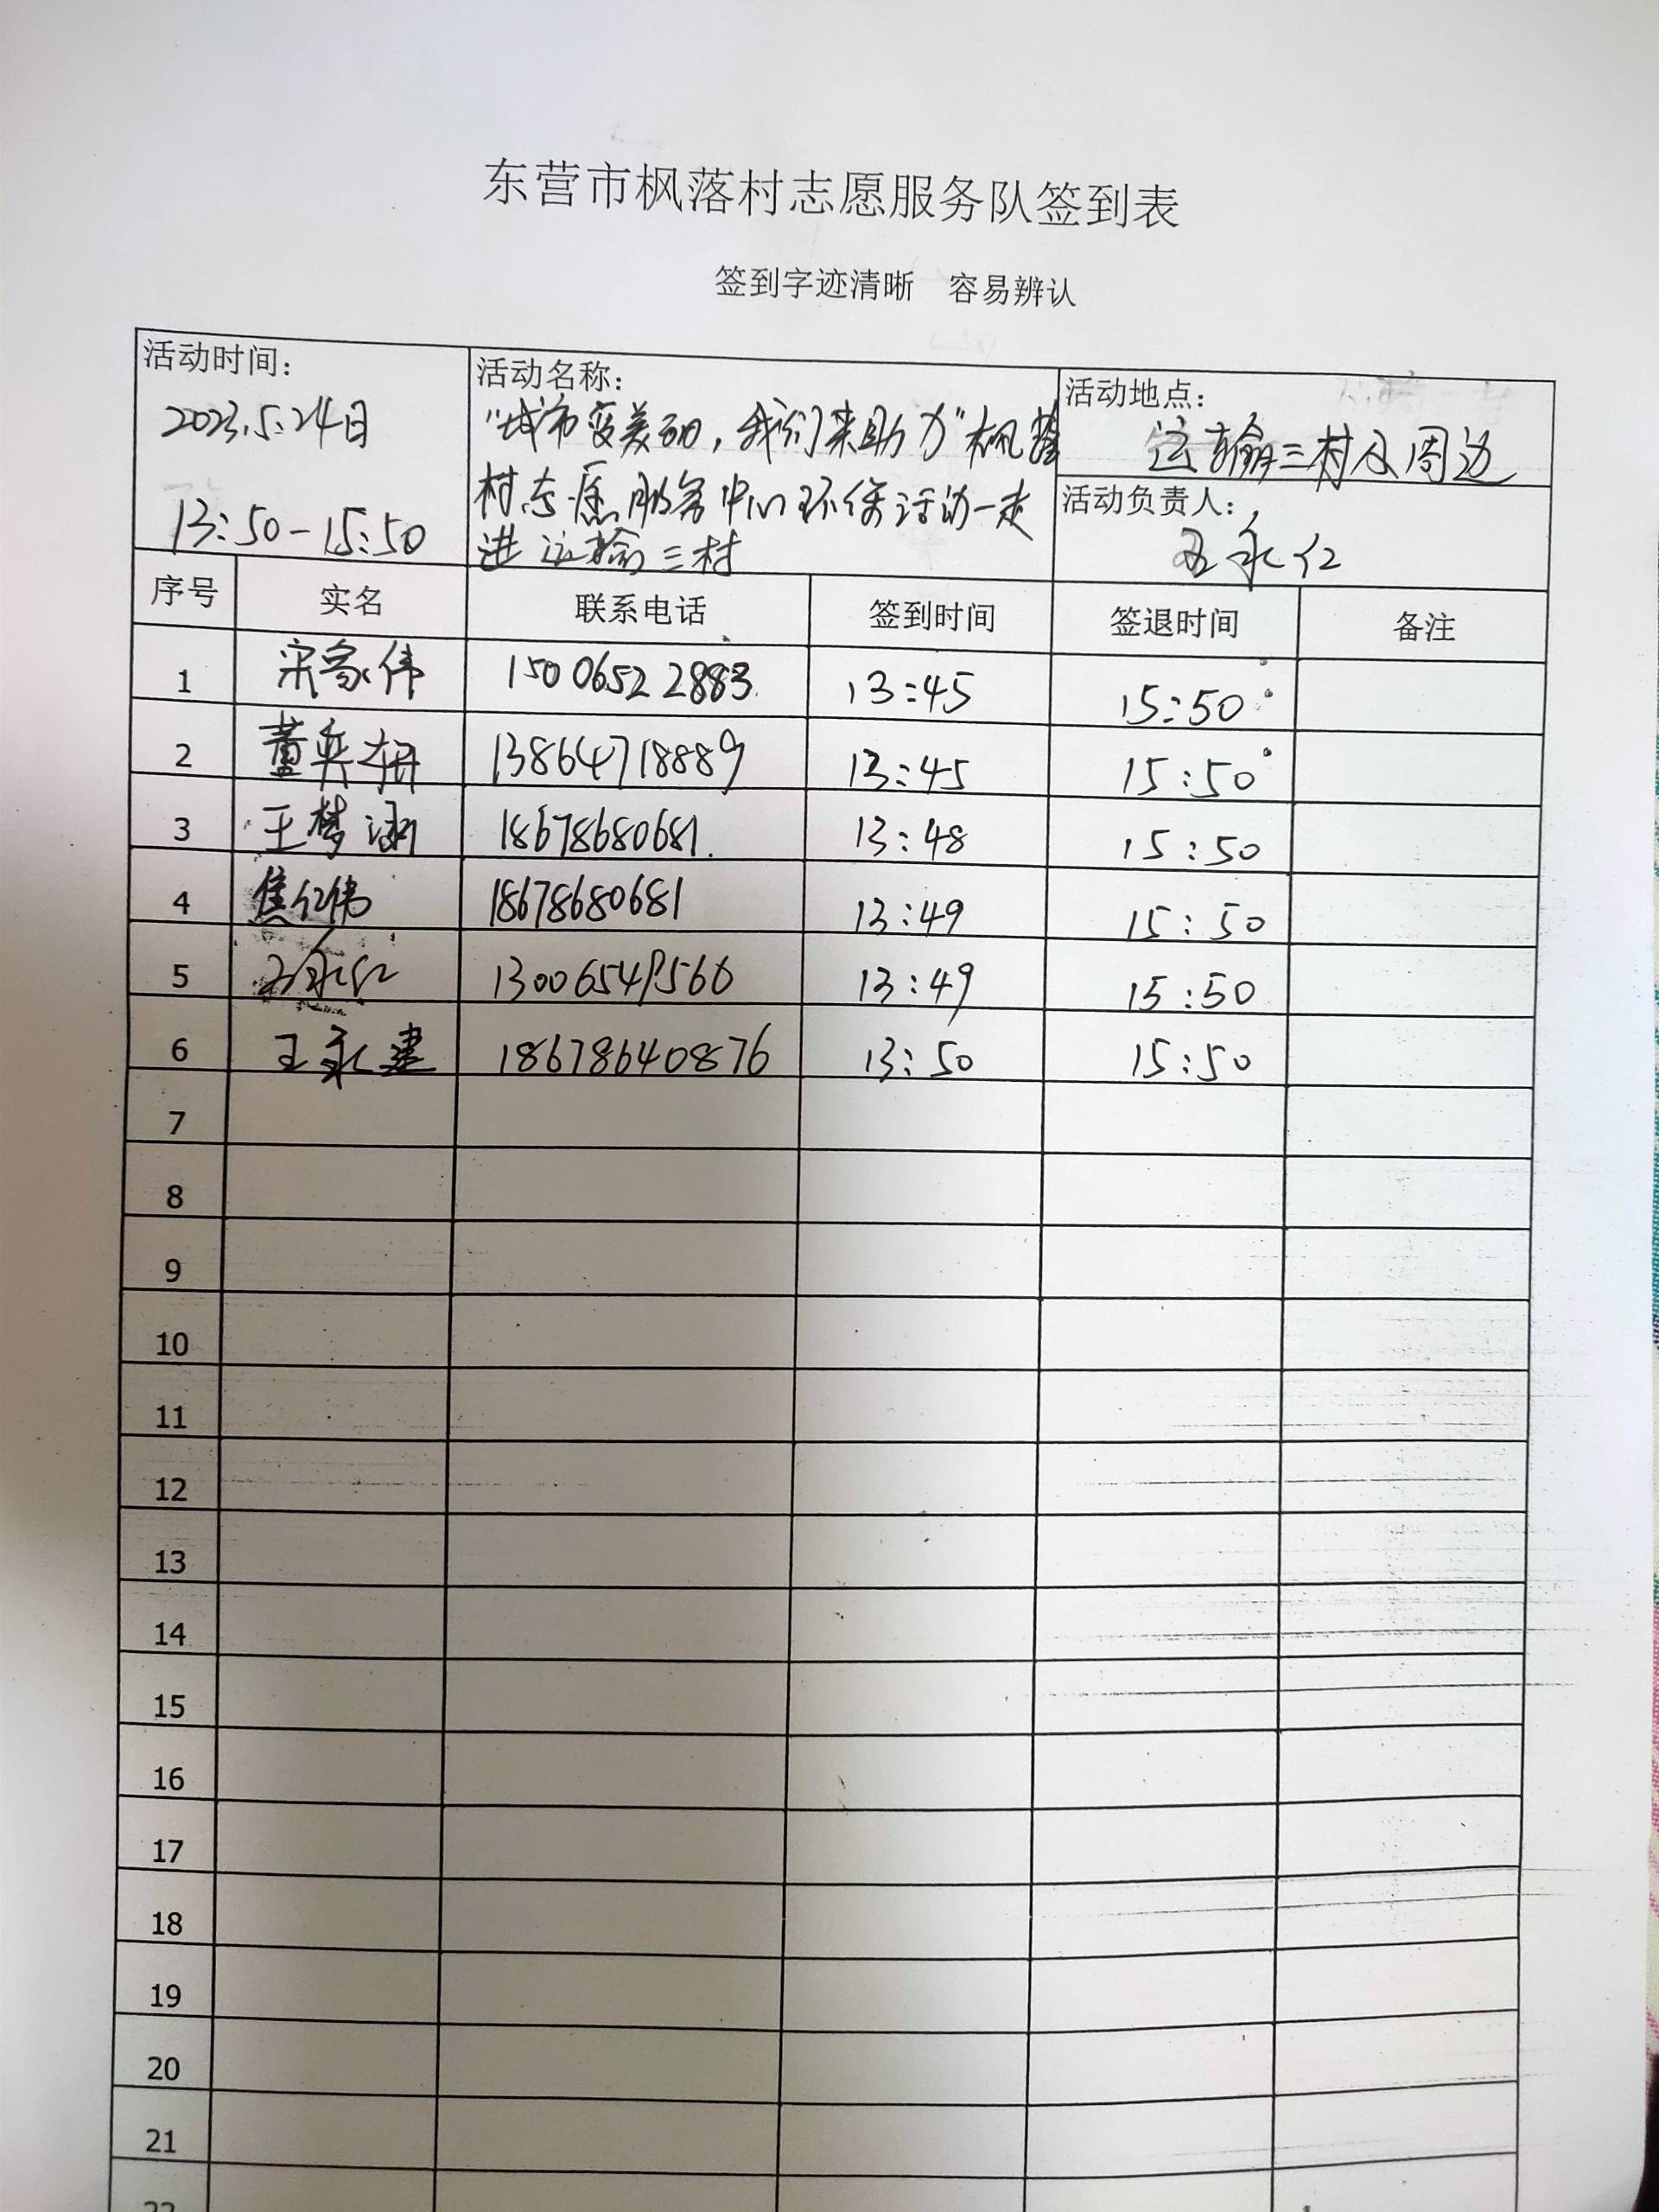 东营市枫落村志愿服务队签到表
签到字迹清晰 容易辨认
活动时间：
2023.5.24日
13:50-15:50
活动名称：
"城市变美丽，我们来助力"枫落
村志愿服务中心环保活动一走
进运输三村
活动地点：
运输三村及周边
活动负责人：
王永仁
序号 实名 联系电话 签到时间 签退时间 备注
1 宋家伟 15006522883 13:45 15:50
2 董奕 13864718889 13:45 15:50
3 王梦涵 18678680681 13:48 15:50
4 焦仁伟 18678680681 13:49 15:50
5 王永仁 13006549566 13:49 15:50
6 王永建 18678640876 13:50 15:50
7
8
9
10
11
12
13
14
15
16
17
18
19
20
21
22